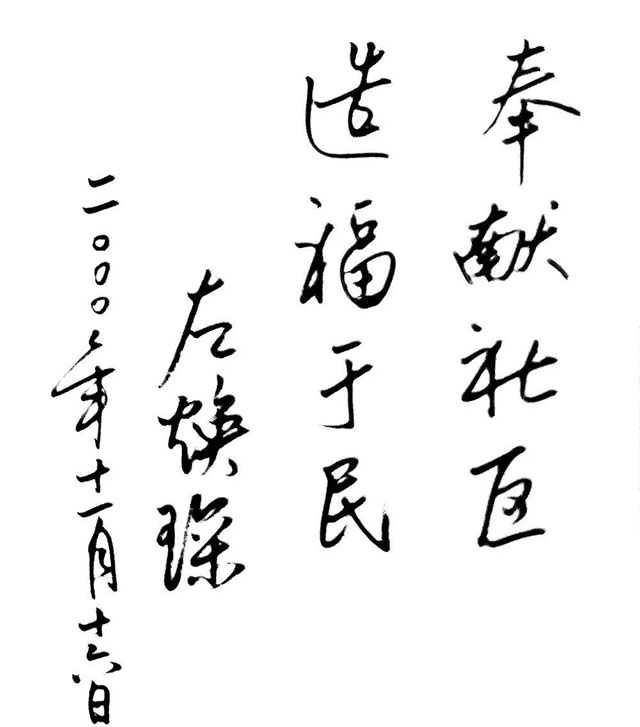 奉献社区
造福于民
左焕琛
二〇〇〇年十一月十六日